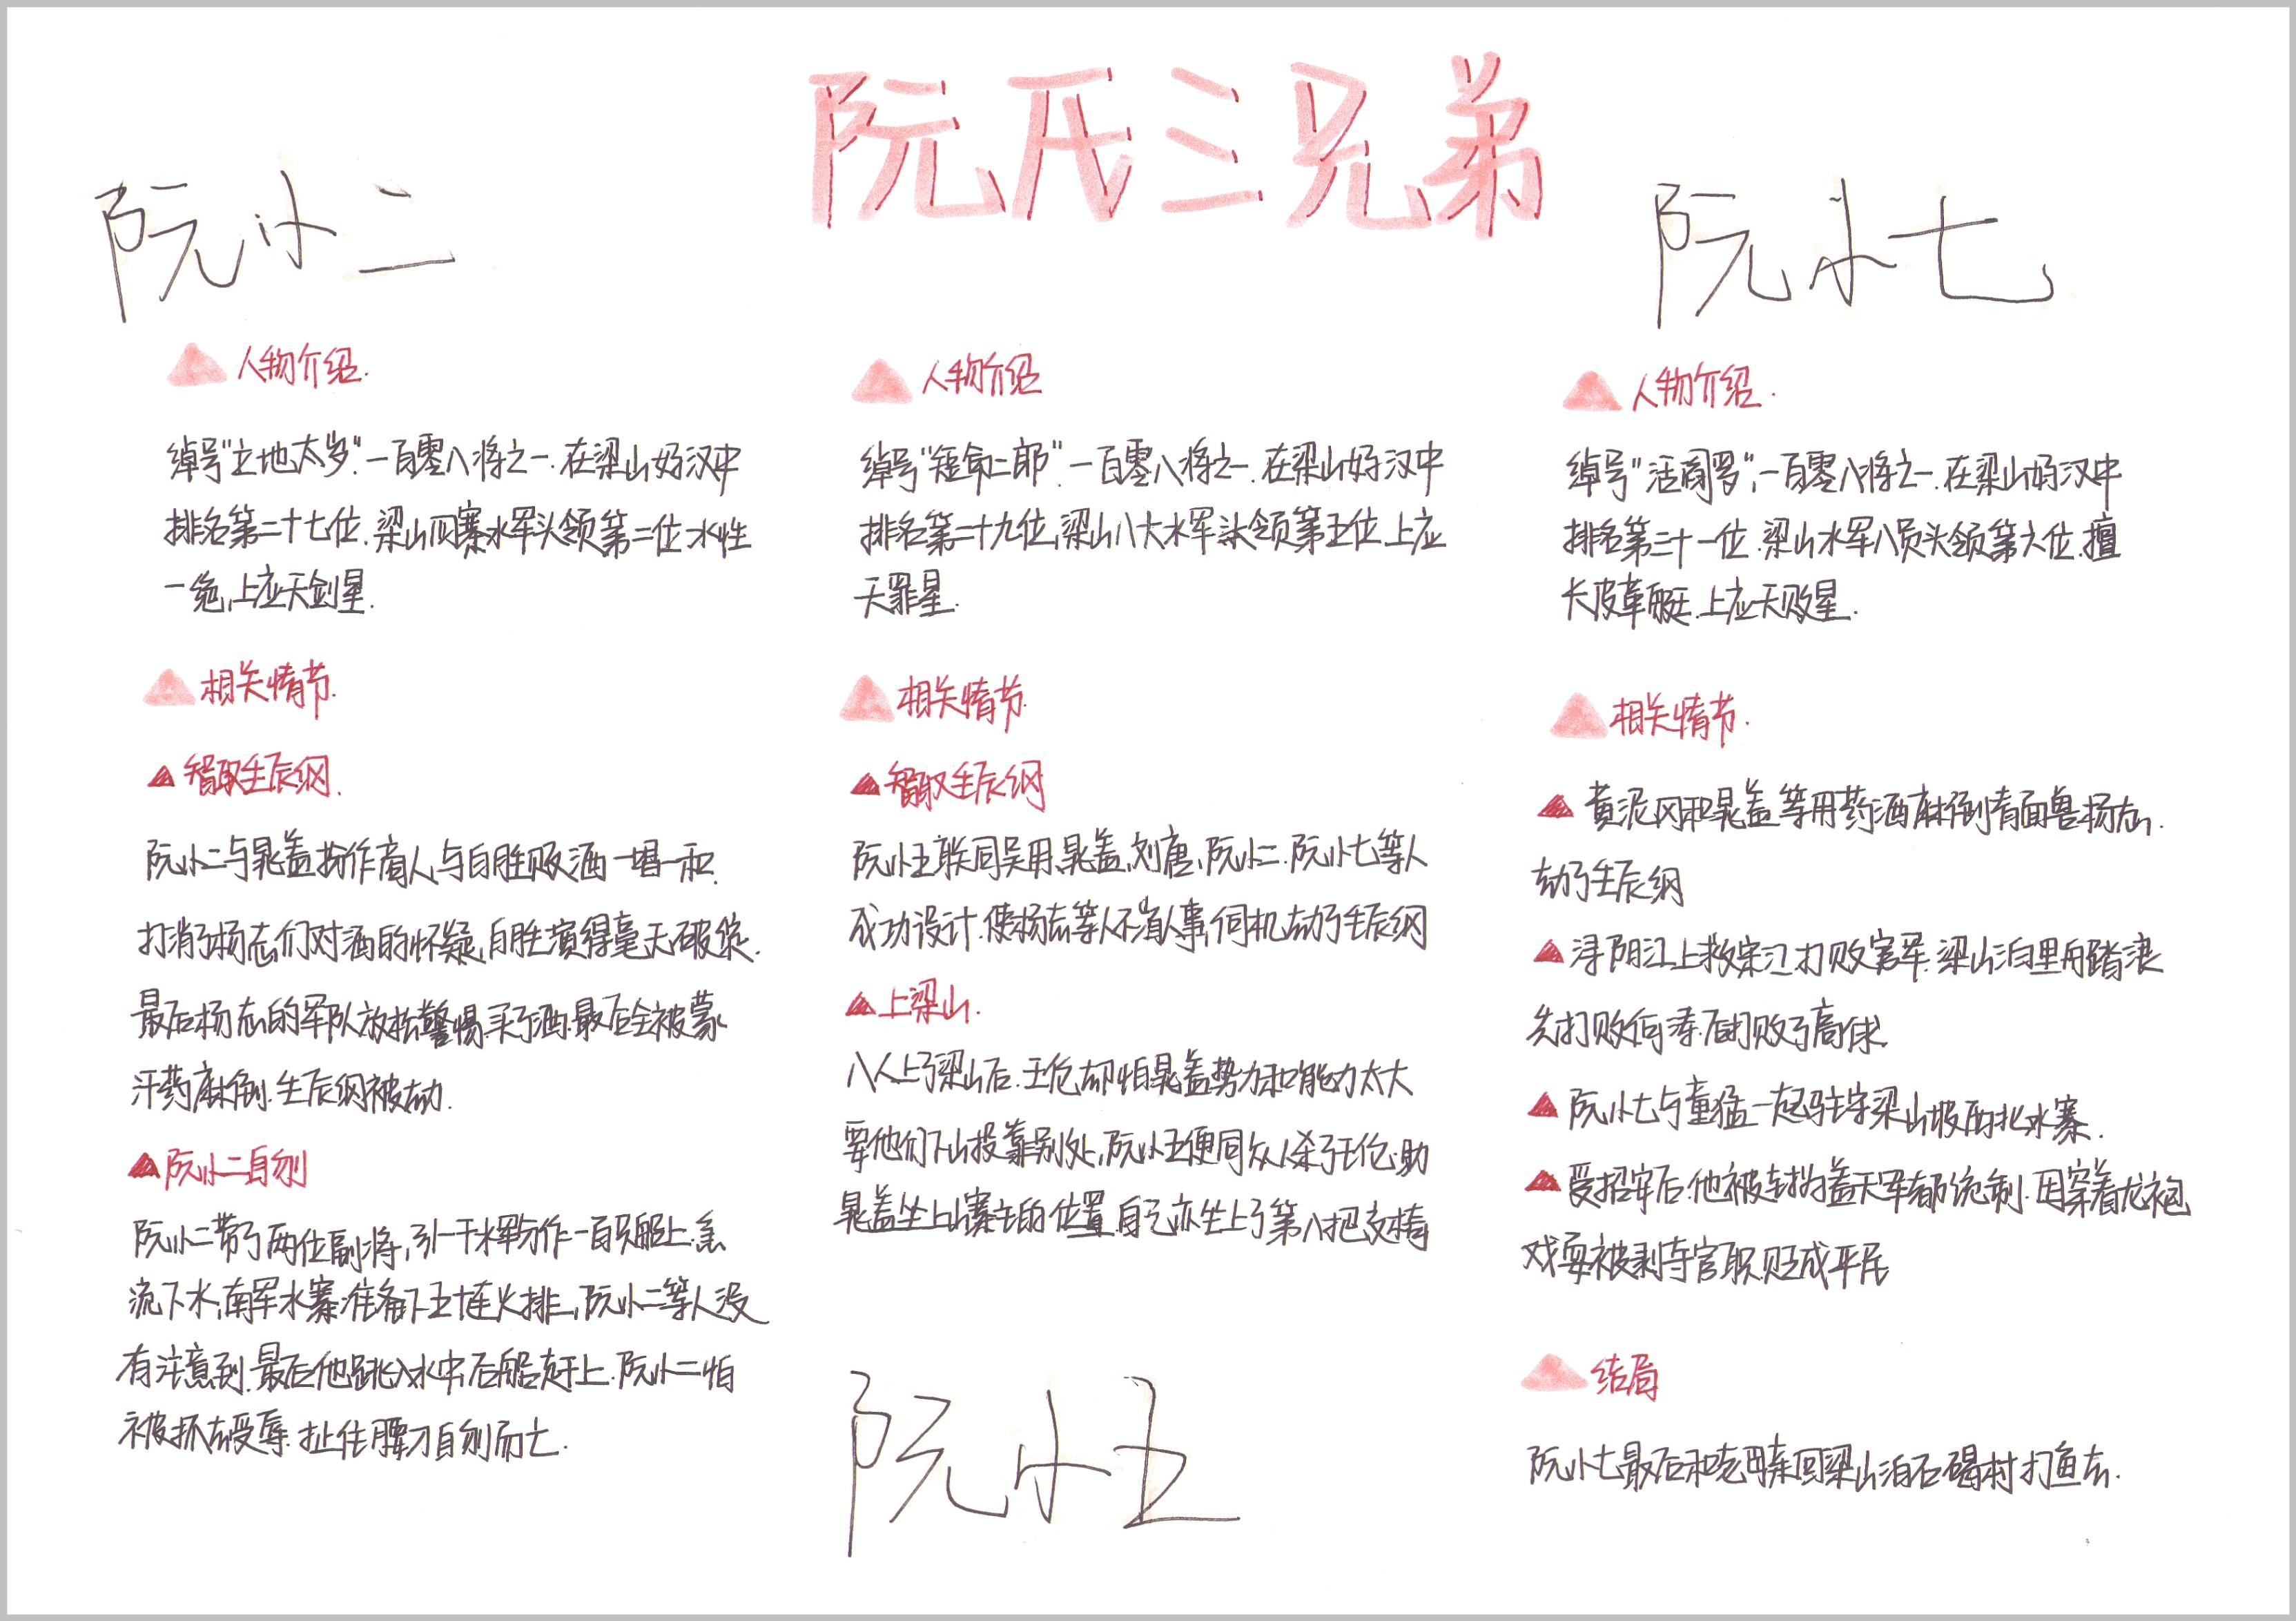 阮氏三兄弟
阮小二
人物介绍.
绰号“立地太岁”.一百零八将之一.在梁山好汉中
排名第二十七位.梁山四寨水军头领第二位.水性
一绝,上应天剑星.
相关情节.
智取生辰纲.
阮小二与晁盖扮作商人,与白胜贩酒一唱一和.
打消了杨志们对酒的怀疑,白胜演得毫无破绽.
最后杨志的军队放松警惕.买了酒.最后全被蒙
汗药麻倒.生辰纲被劫.
阮小二自刎
阮小二带了两位副将,引一千水军分作一百只船上.急
流下水,南军水寨准备下五十连火排,阮小二等人没
有注意到.最后他跳入水中后船赶上.阮小二怕
被抓去受辱.扯住腰刀自刎而亡.
人物介绍
绰号“短命二郎”.一百零八将之一.在梁山好汉中
排名第二十九位,梁山八大水军头领第五位.上应
天罪星.
相关情节
智取生辰纲
阮小五联同吴用,晁盖,刘唐,阮小二.阮小七等人
成功设计.使杨志等人不省人事,伺机劫了生辰纲
上梁山.
八人上了梁山后.王伦却怕晁盖势力和能力太大
要他们下山投靠别处,阮小五便同众人杀了王伦.助
晁盖坐上山寨主的位置.自己亦坐上了第八把交椅
阮小五
阮小七
人物介绍.
绰号“活阎罗”,一百零八将之一.在梁山好汉中
排名第三十一位.梁山水军八员头领第六位.擅
长皮革艇.上应天败星.
相关情节.
黄泥冈和晁盖等用药酒麻倒青面兽杨志.
劫了生辰纲
浔阴江上救宋江打败官军.梁山泊里用踏浪
先打败何涛.后打败了高俅.
阮小七与童猛一起驻守梁山坡西北水寨.
受招安后.他被封为盖天军都统制.因穿着龙袍
戏耍被剥夺官职.贬成平民
结局
阮小七最后和老母亲回梁山泊石碣村打鱼去.